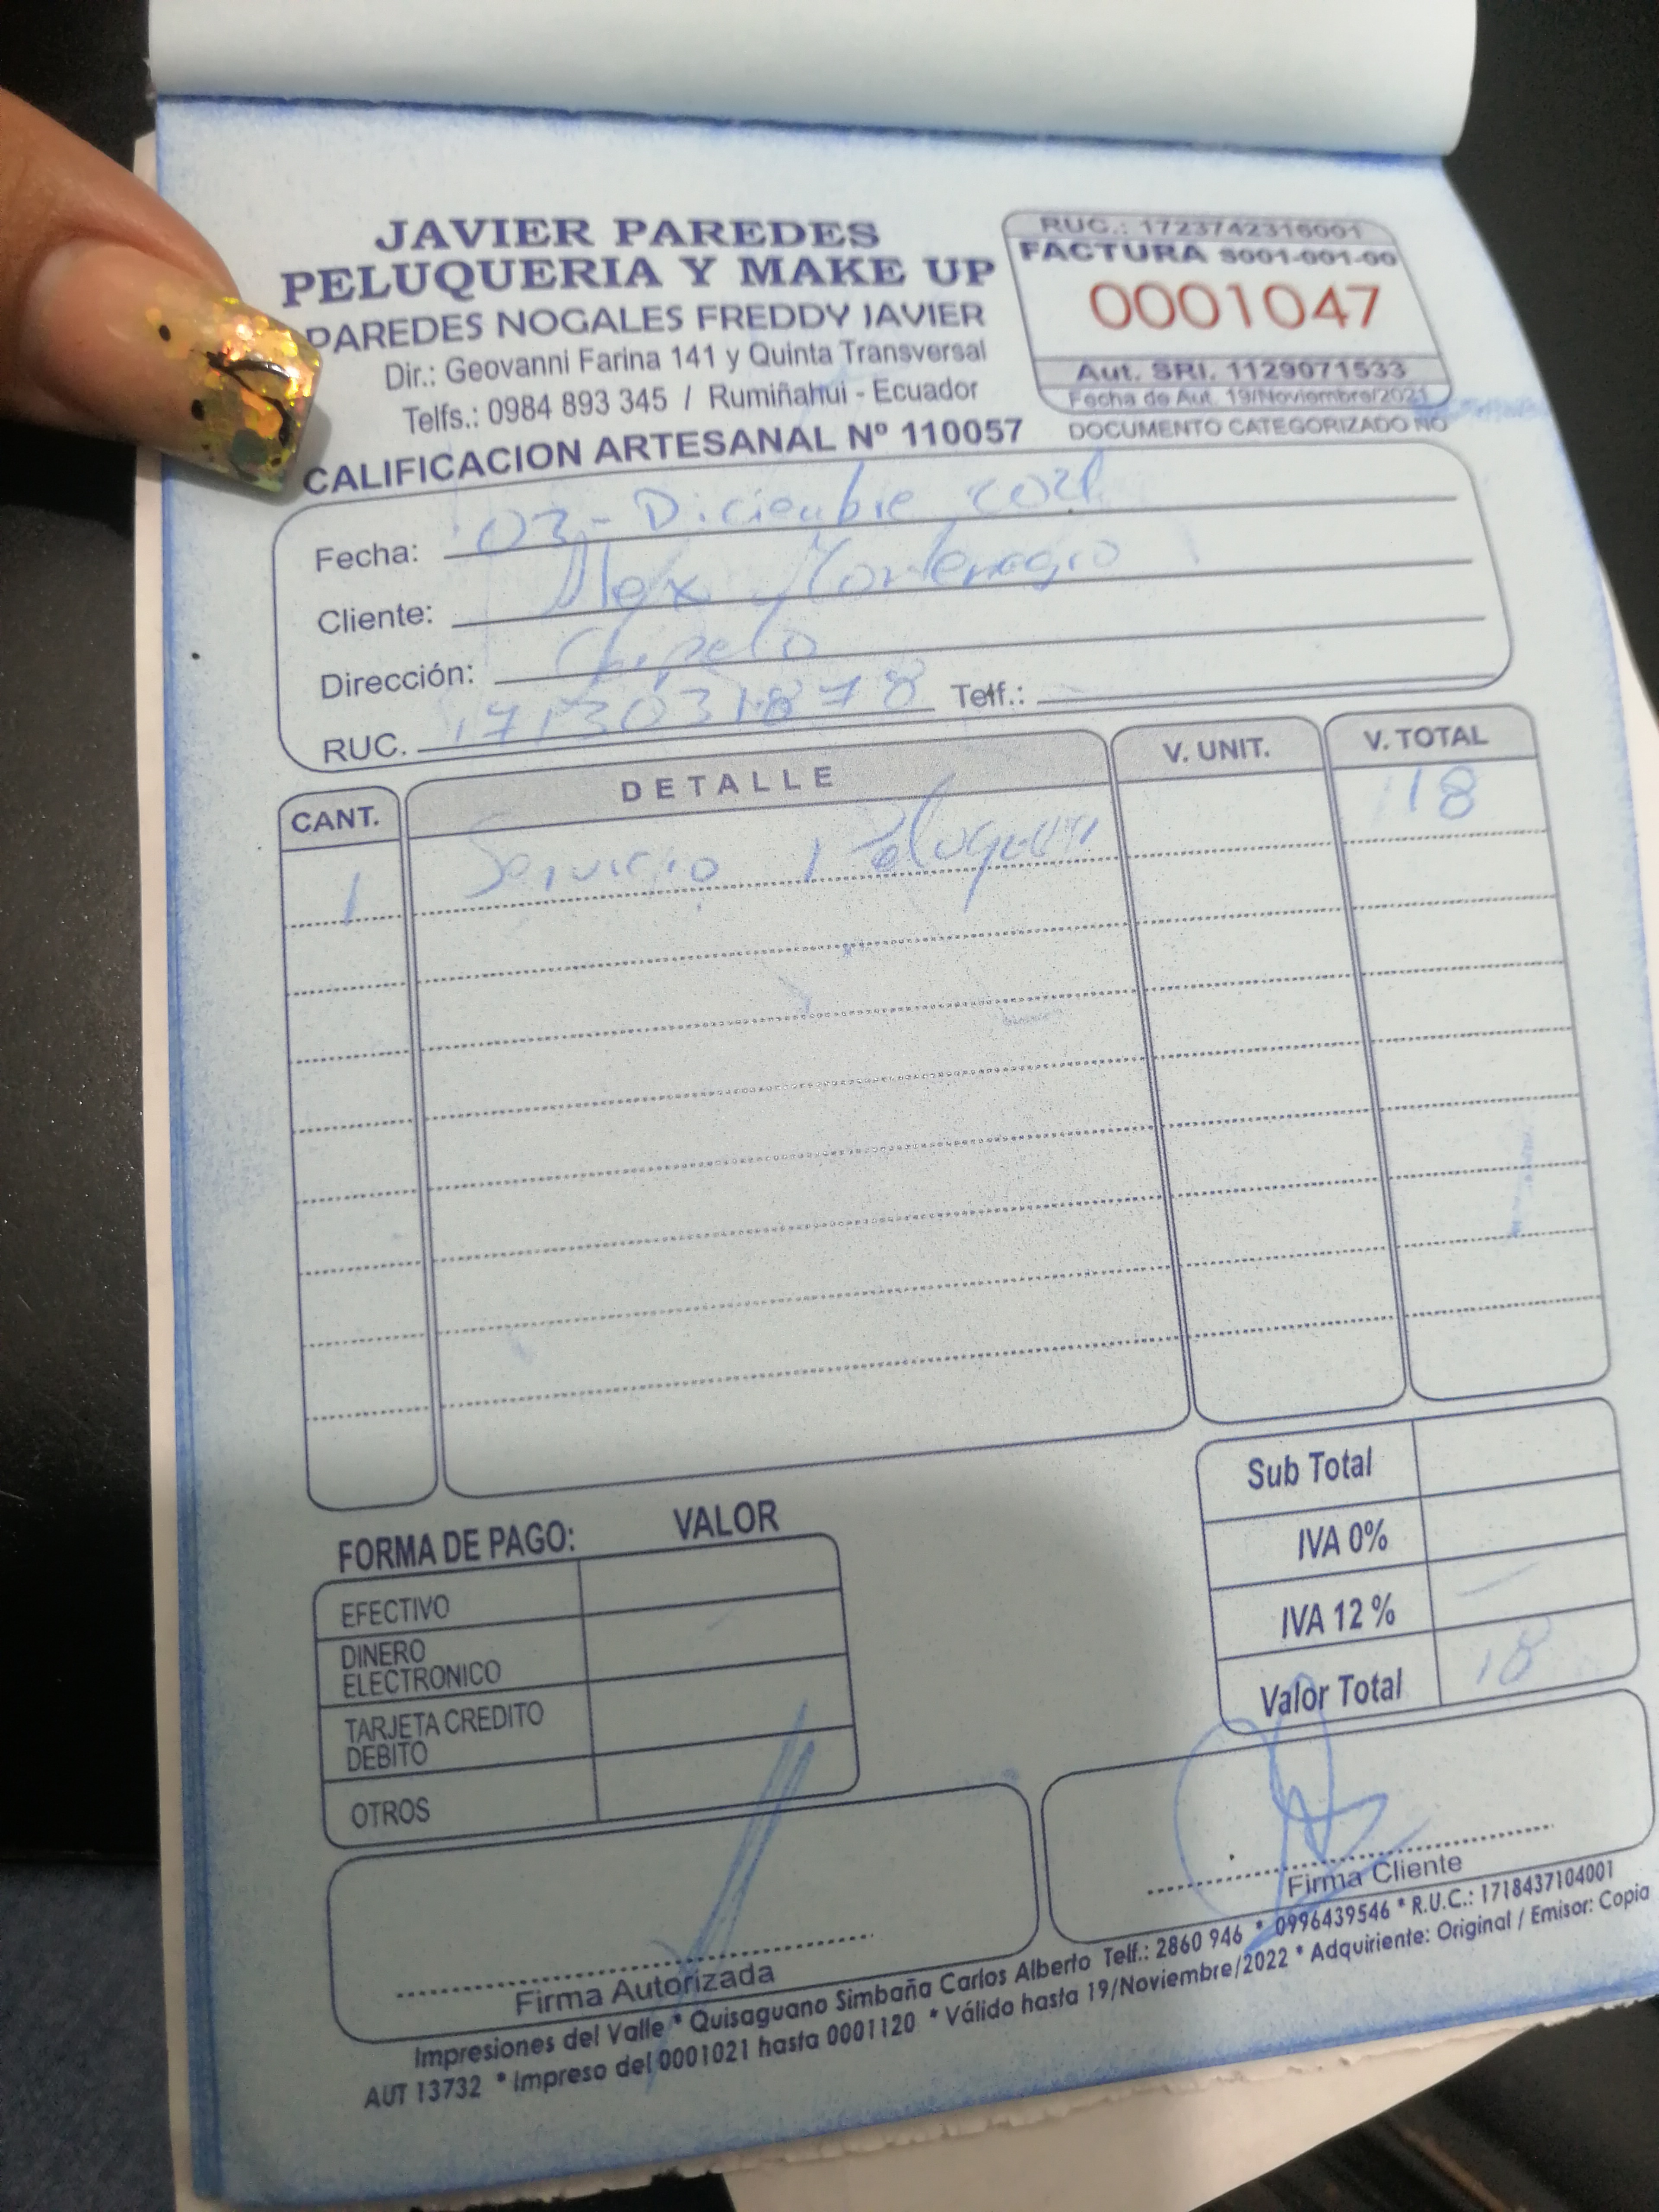 JAVIER PAREDES
PELUQUERIA Y MAKE UP
PAREDES NOGALES FREDDY JAVIER
Dir.: Geovanni Farina 141 y Quinta Transversal
Telfs.: 0984 893 345 / Rumiñahui - Ecuador
CALIFICACION ARTESANAL Nº 110057
RUC.: 1723742316001
FACTURA S001-001-00
0001047
Aut. SRI. 1129071533
Fecha de Aut. 19/Noviembre/2021
DOCUMENTO CATEGORIZADO NO
Fecha: 03 - Diciembre 2021
Cliente: Alex Montenegro
Dirección:
RUC. 1713031878 Telf.:
CANT. DETALLE V. UNIT. V. TOTAL
1 Servicio Peluqueria 18
Sub Total
IVA 0%
IVA 12 % –
Valor Total 18
FORMA DE PAGO: VALOR
EFECTIVO
DINERO
ELECTRONICO
TARJETA CREDITO
DEBITO
OTROS
Firma Autorizada
Firma Cliente
Impresiones del Valle * Quisaguano Simbaña Carlos Alberto Telf.: 2860 946 * 0996439546 * R.U.C.: 1718437104001
AUT 13732 * Impreso del 0001021 hasta 0001120 * Válido hasta 19/Noviembre/2022 * Adquiriente: Original / Emisor: Copia